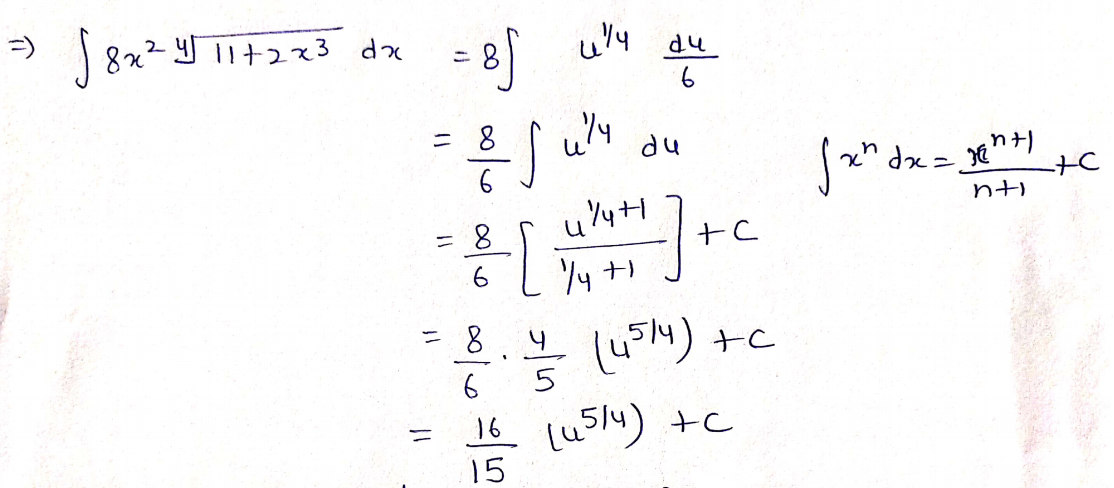 ⇒ ∫ 8x² ∜(11+2x³) dx = 8∫ u^1/4 du/6
= 8/6 ∫ u^1/4 du
∫ xⁿ dx = x^n+1/n+1 + C
= 8/6 [ u^1/4+1 / 1/4+1 ] + C
= 8/6 . 4/5 (u^5/4) + C
= 16/15 (u^5/4) + C